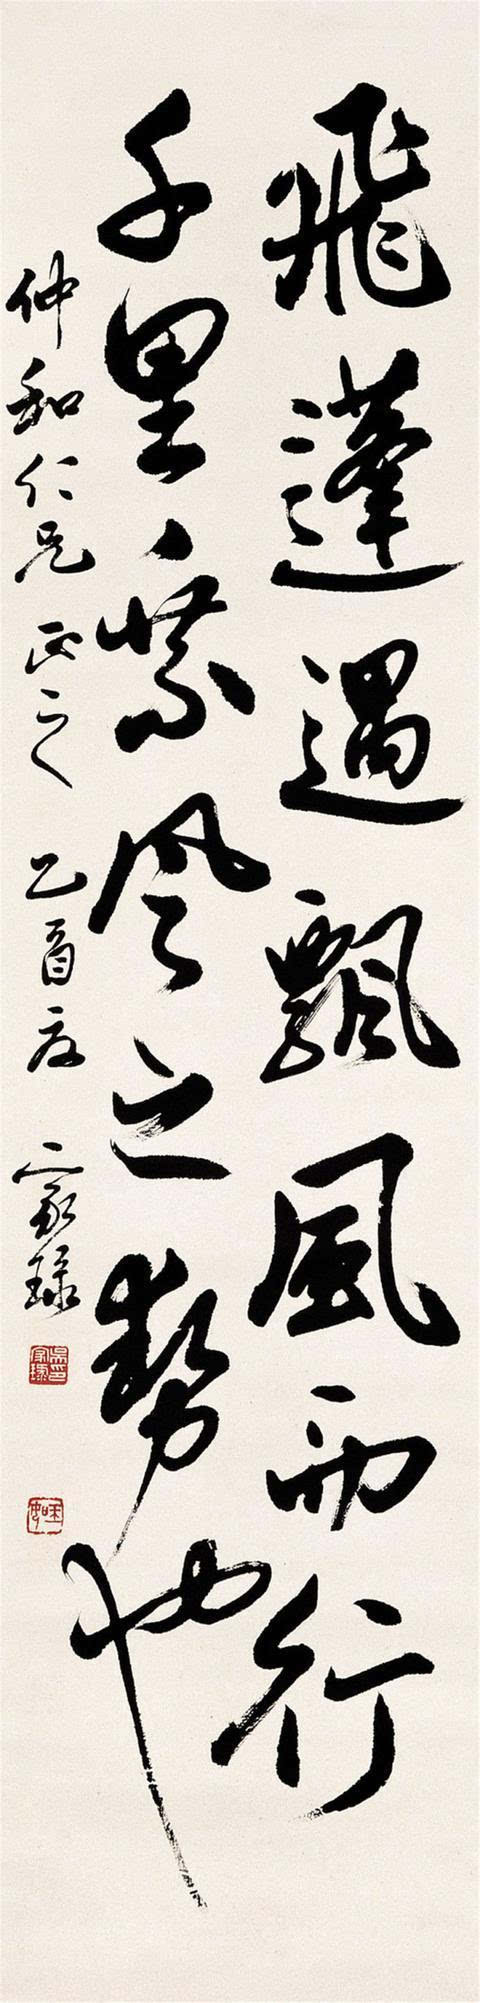 飛蓬遇飄風而行
千里乗風之勢也
仲和仁兄正之乙酉夏家琭
吳家琭印